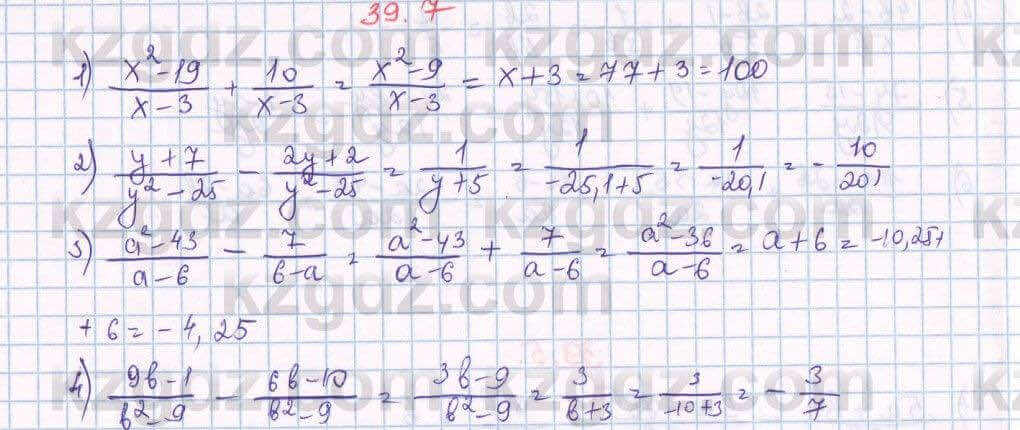 39.7
1) (x²-19)/(x-3) + 10/(x-3) = (x²-9)/(x-3) = x+3 = 77+3 = 100
2) (y+7)/(y²-25) - (2y+2)/(y²-25) = 1/(y+5) = 1/(-25,1+5) = 1/(-20,1) = -10/201
3) (a²-43)/(a-6) - 7/(6-a) = (a²-43)/(a-6) + 7/(a-6) = (a²-36)/(a-6) = a+6 = -10,25+
+6 = -4,25
4) (9b-1)/(b²-9) - (6b-10)/(b²-9) = (3b-9)/(b²-9) = 3/(b+3) = 3/(-10+3) = -3/7
kzgdz.com kzgdz.com
kzgdz.com
kzgdz.com kzgdz.com
kzgdz.com
kzgdz.com kzgdz.com